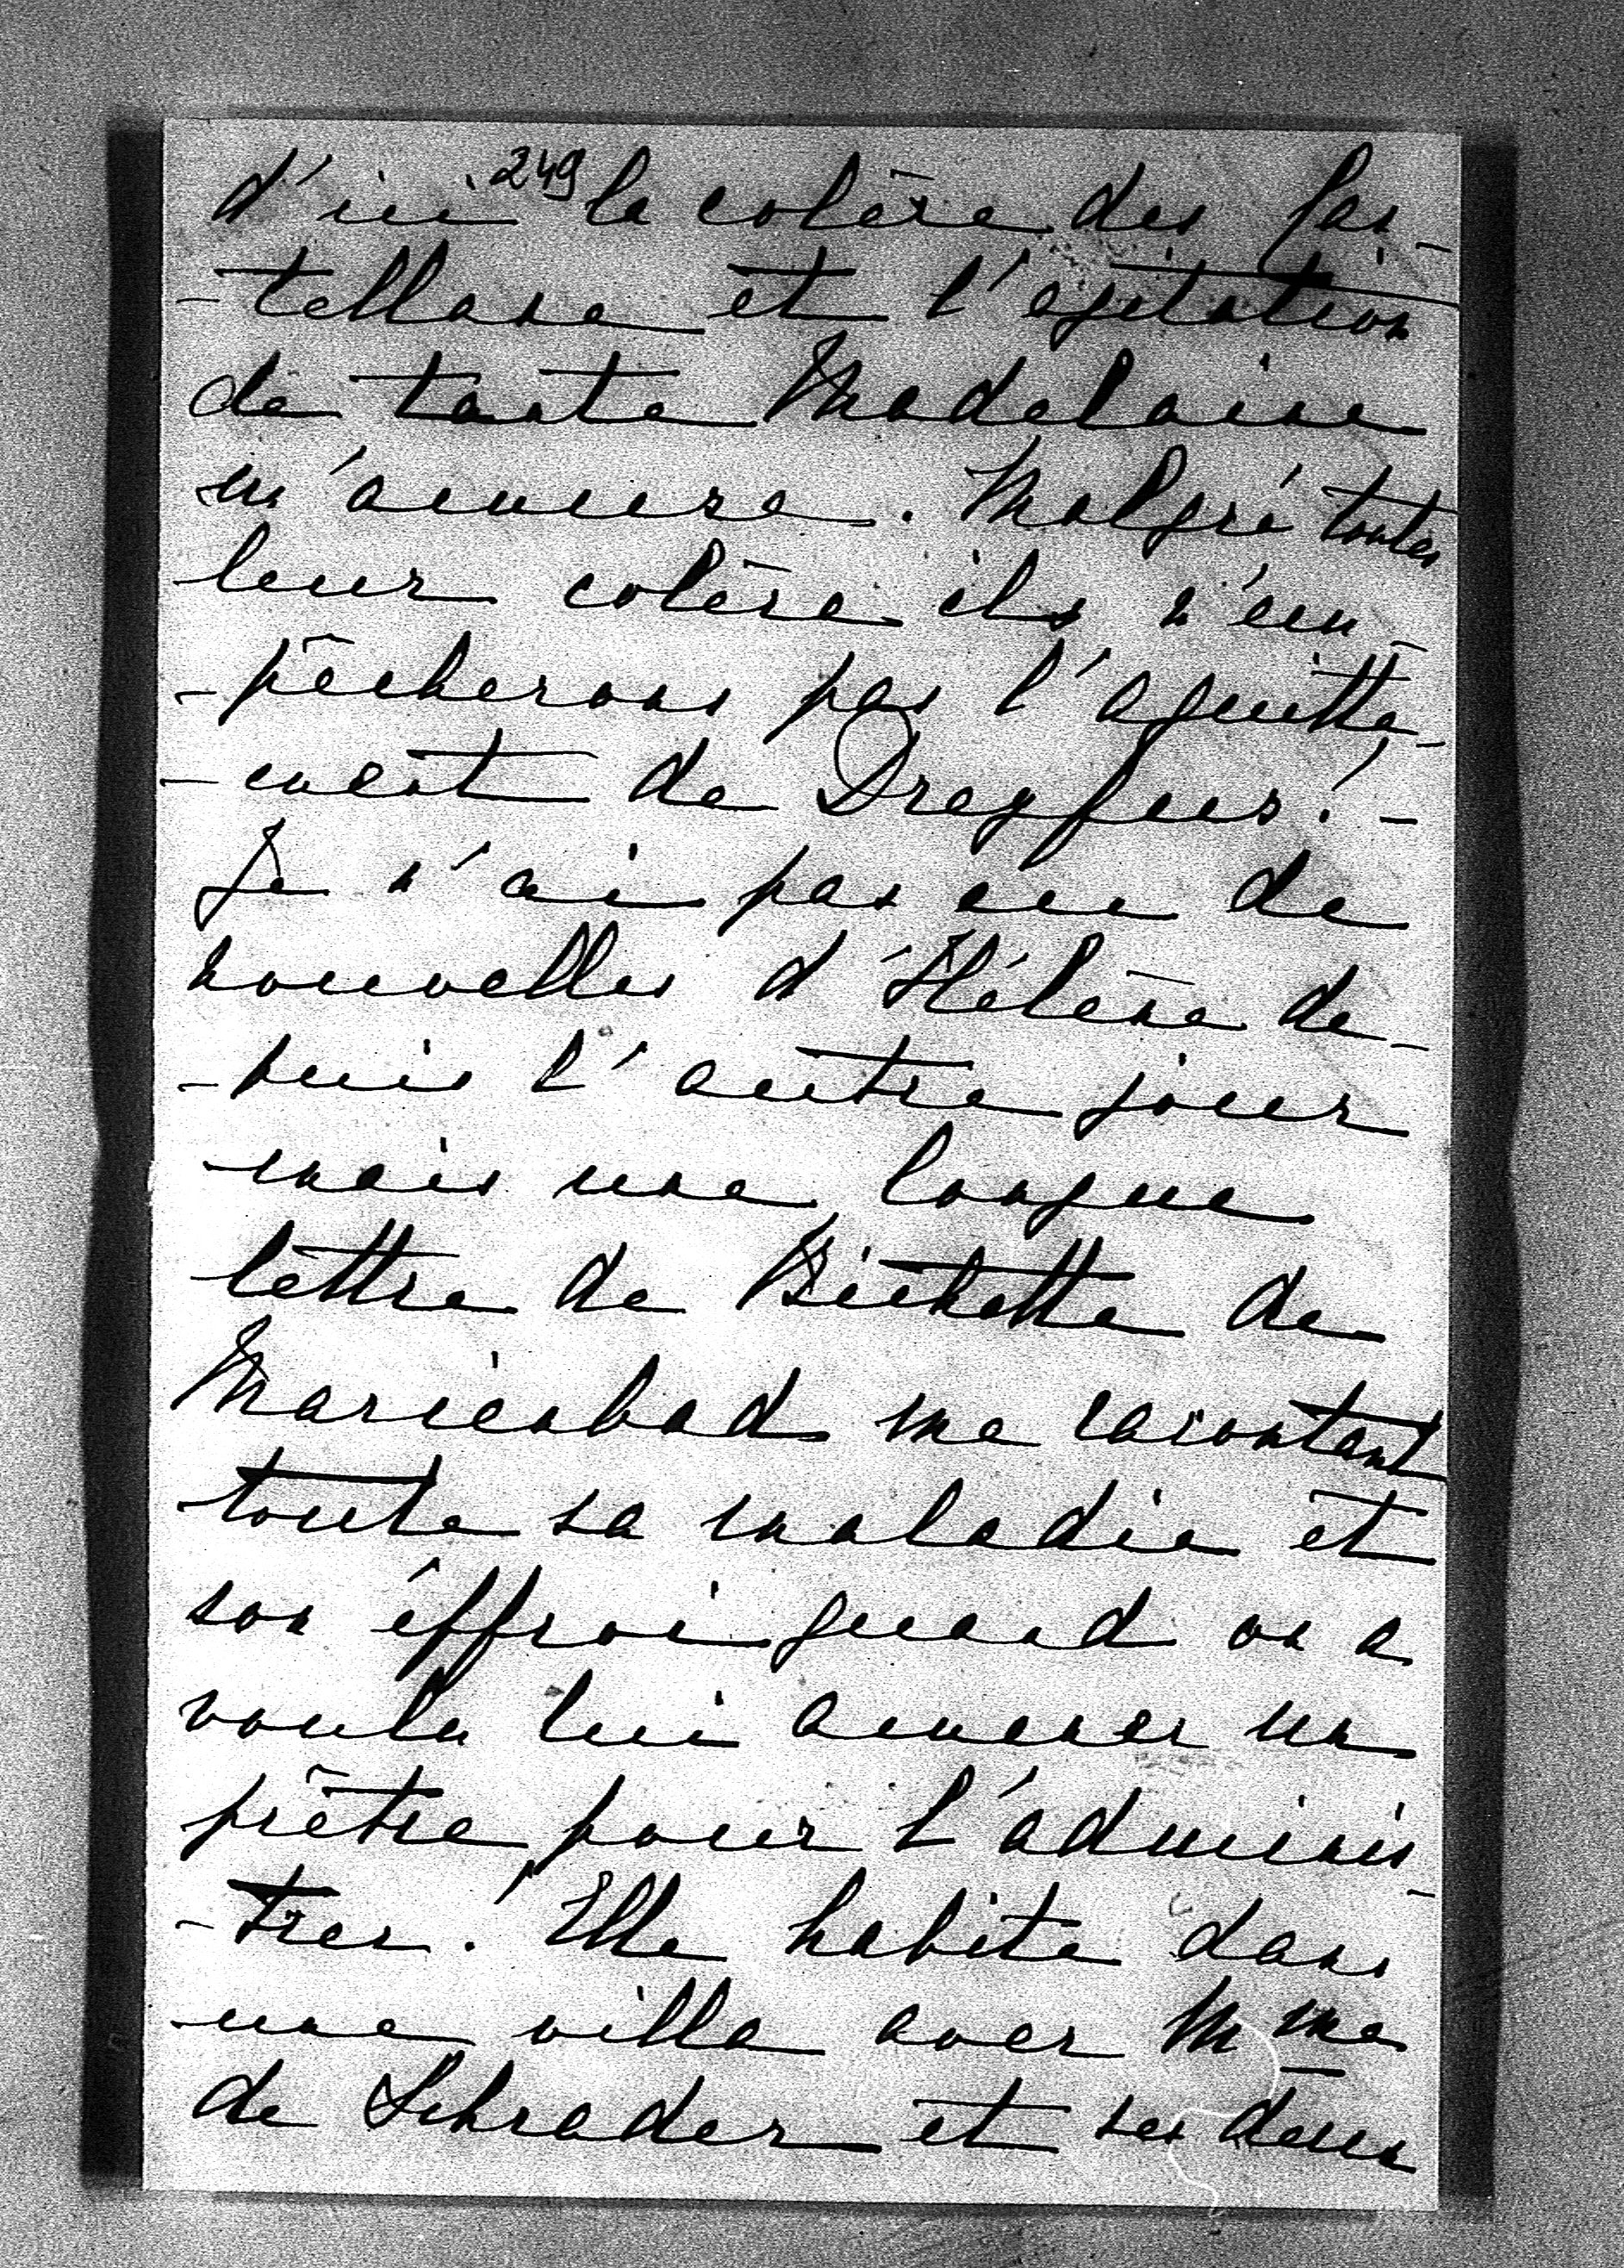 249
d'ici la colère des Pas-
-tellane et l'agitation
de tante Madelaine
m'amuse. Malgré toutes
leur colère ils n'em-
-pêcherons pas l'aquitte-
-ment de Dreyfus! -
Je n'ai pas eu de
nouvelles d'Hélène de-
-puis l'autre jour
mais une longue
lettre de Bichette de
Marienbad me racontant
toute sa maladie et
son éffroi quand on a
voulu lui amener un
prêtre pour l'adminis-
-trer! Elle habite dans
une villa avec Mme
de Schrader et ses deux